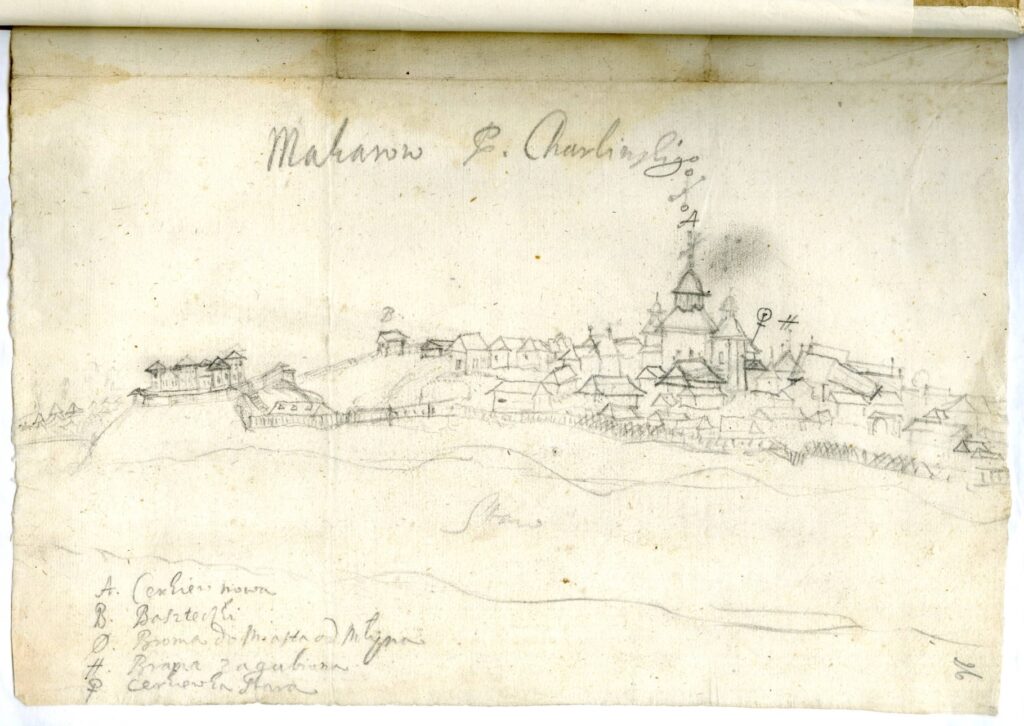 Makarow P. Charlinski
A
B.
H
Staw
A. Cerkiew nowa
B. Baszteczki
Ø. Broma do Miasta od Młyna
H. Brama
P Cerkiewka stara
26